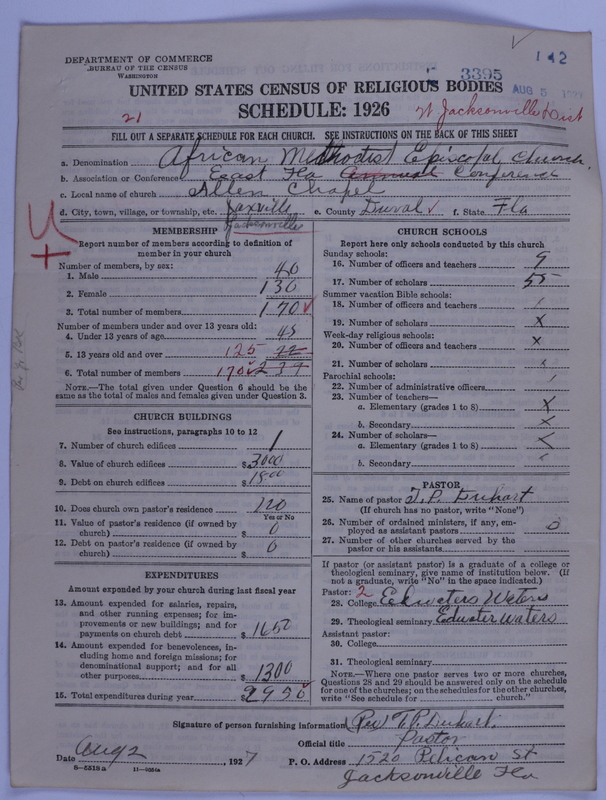 142
DEPARTMENT OF COMMERCE
BUREAU OF THE CENSUS
WASHINGTON
3395
AUG 5
UNITED STATES CENSUS OF RELIGIOUS BODIES
SCHEDULE: 1926
21
Jacksonville Dist
FILL OUT A SEPARATE SCHEDULE FOR EACH CHURCH. SEE INSTRUCTIONS ON THE BACK OF THIS SHEET
a. Denomination African Methodist Episcopal Church
b. Association or Conference East Fla Annual Conference
c. Local name of church Allen Chapel
d. City, town, village, or township, etc. Jaxville Jacksonville e. County Duval f. State Fla
MEMBERSHIP
Report number of members according to definition of
member in your church
Number of members, by sex:
1. Male 40
2. Female 130
3. Total number of members 170
Number of members under and over 13 years old:
4. Under 13 years of age 45
5. 13 years old and over 125
6. Total number of members 170
NOTE.—The total given under Question 6 should be the
same as the total of males and females given under Question 3.
CHURCH BUILDINGS
See instructions, paragraphs 10 to 12
7. Number of church edifices 1
8. Value of church edifices $3000
9. Debt on church edifices $1500
10. Does church own pastor's residence no
Yes or No
11. Value of pastor's residence (if owned by
church) $ 0
12. Debt on pastor's residence (if owned by
church) $ 0
EXPENDITURES
Amount expended by your church during last fiscal year
13. Amount expended for salaries, repairs,
and other running expenses; for im-
provements or new buildings; and for
payments on church debt $1650
14. Amount expended for benevolences, in-
cluding home and foreign missions; for
denominational support; and for all
other purposes $1300
15. Total expenditures during year $2950
CHURCH SCHOOLS
Report here only schools conducted by this church
Sunday schools:
16. Number of officers and teachers 9
17. Number of scholars 55
Summer vacation Bible schools:
18. Number of officers and teachers
19. Number of scholars X
Week-day religious schools:
20. Number of officers and teachers X
21. Number of scholars X
Parochial schools:
22. Number of administrative officers
23. Number of teachers—
a. Elementary (grades 1 to 8) X
b. Secondary X
24. Number of scholars—
a. Elementary (grades 1 to 8) X
b. Secondary
PASTOR
25. Name of pastor T. P. Duhart
(If church has no pastor, write "None")
26. Number of ordained ministers, if any, em-
ployed as assistant pastors 0
27. Number of other churches served by the
pastor or his assistants
If pastor (or assistant pastor) is a graduate of a college or
theological seminary, give name of institution below. (If
not a graduate, write "No" in the space indicated.)
Pastor: 2
28. College Edwaters Waters
29. Theological seminary Edwater Waters
Assistant pastor:
30. College
31. Theological seminary
NOTE.—Where one pastor serves two or more churches,
Questions 28 and 29 should be answered only on the schedule
for one of the churches; on the schedules for the other churches,
write "See schedule for church."
Signature of person furnishing information Rev T. P. Duhart
Official title Pastor
Date Aug 2, 1927 P. O. Address 1520 Pelican St
8—5518a 11—9051a
Jacksonville Fla